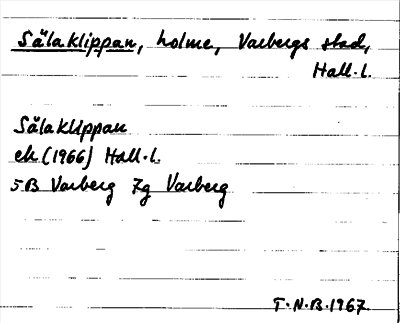 Sälaklippan, holme, Varbergs stad,
Hall.l.
Sälaklippan
ek (1966) Hall.l.
5B Varberg 7g Varberg
T.N.B.1967